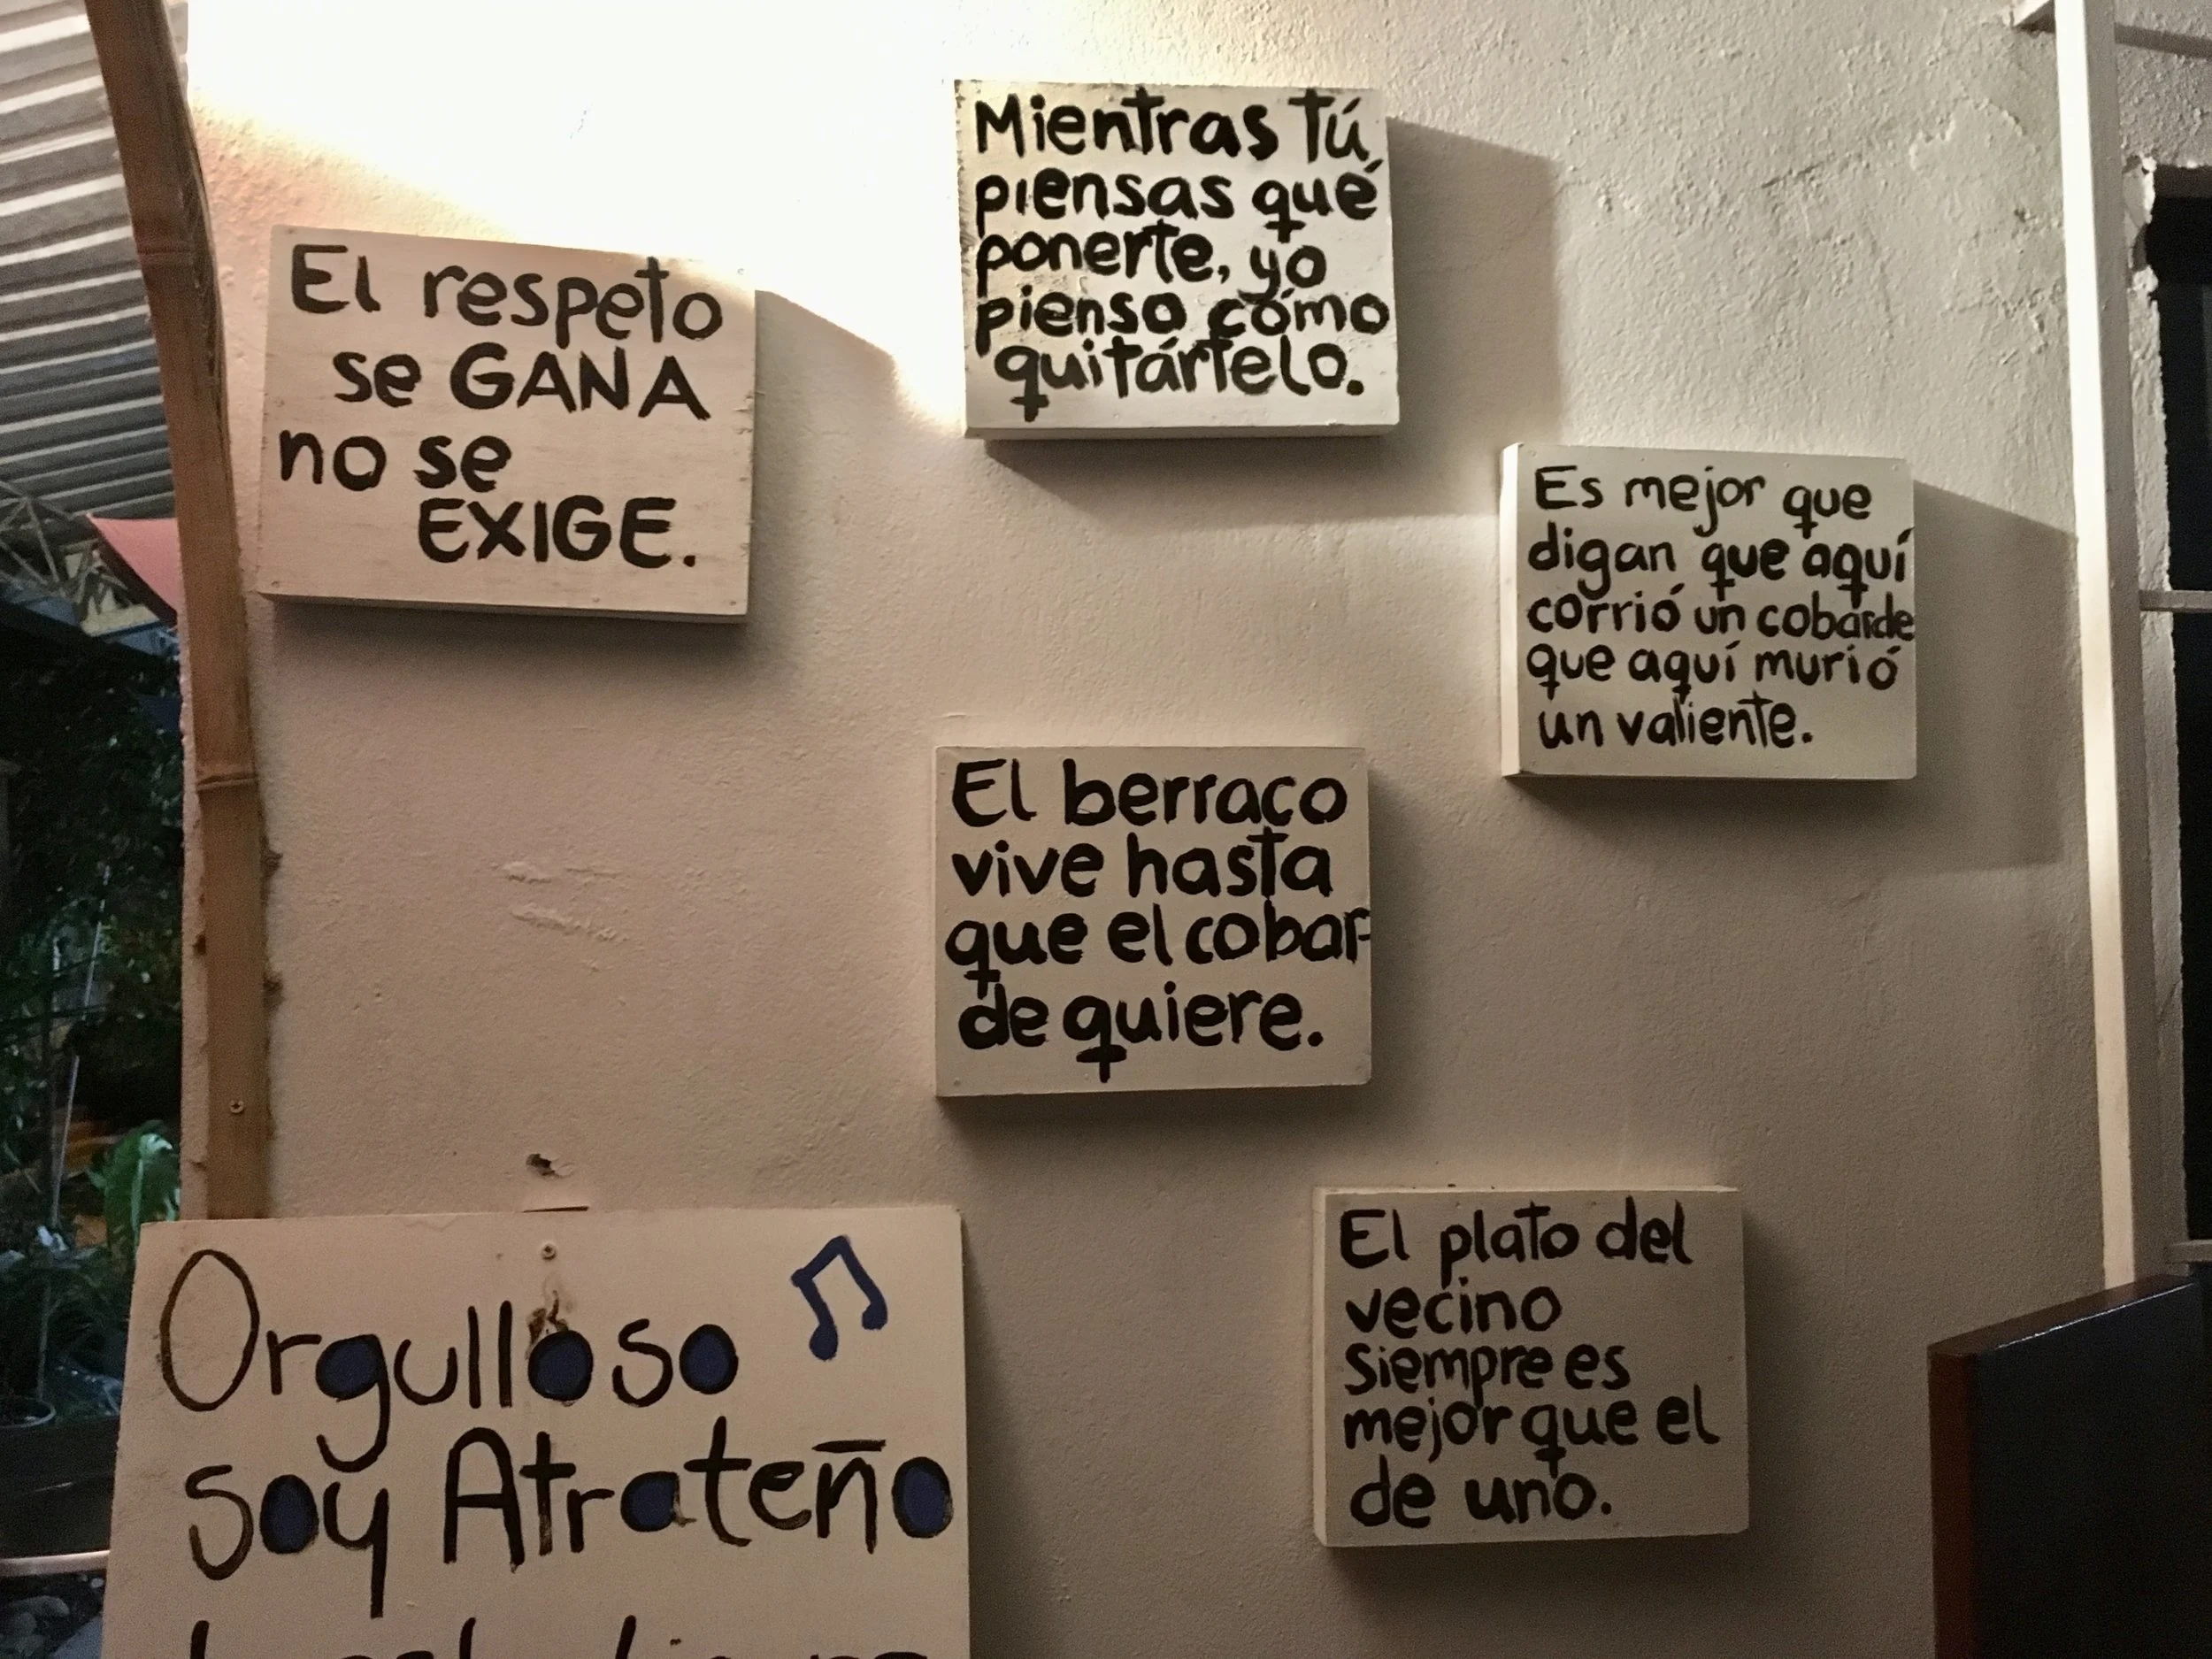 El respeto
se GANA
no se
EXIGE.
Mientras tú
piensas qué
ponerte, yo
pienso cómo
quitártelo.
Es mejor que
digan que aquí
corrió un cobarde
que aquí murió
un valiente.
El berraco
vive hasta
que el cobar-
de quiere.
Orgulloso
soy Atrateño
El plato del
vecino
siempre es
mejor que el
de uno.